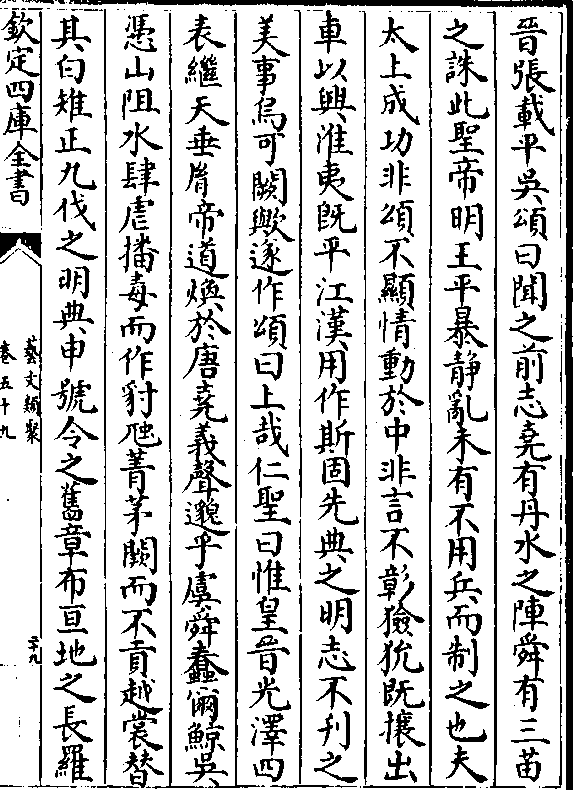 晉張載平吳頌曰聞之前志堯有丹水之陣舜有三苗
之誅此聖帝明王平暴靜亂未有不用兵而制之也夫
太上成功非頌不顯情動於中非言不彰獫狁既攘出
車以興淮夷既平江漢用作斯固先典之明志不刋之
美事烏可闕歟遂作頌曰上哉仁聖曰惟皇晉光澤四
表繼天垂胤帝道煥於唐堯義聲邈乎虞舜蠢爾鯨吳
憑山阻水肆虐播毒而作豺虺菁茅闕而不貢越裳替
其白雉正九伐之明典申號令之舊章布亘地之長羅
欽定四庫全書
藝文類聚
卷五十九
二十九